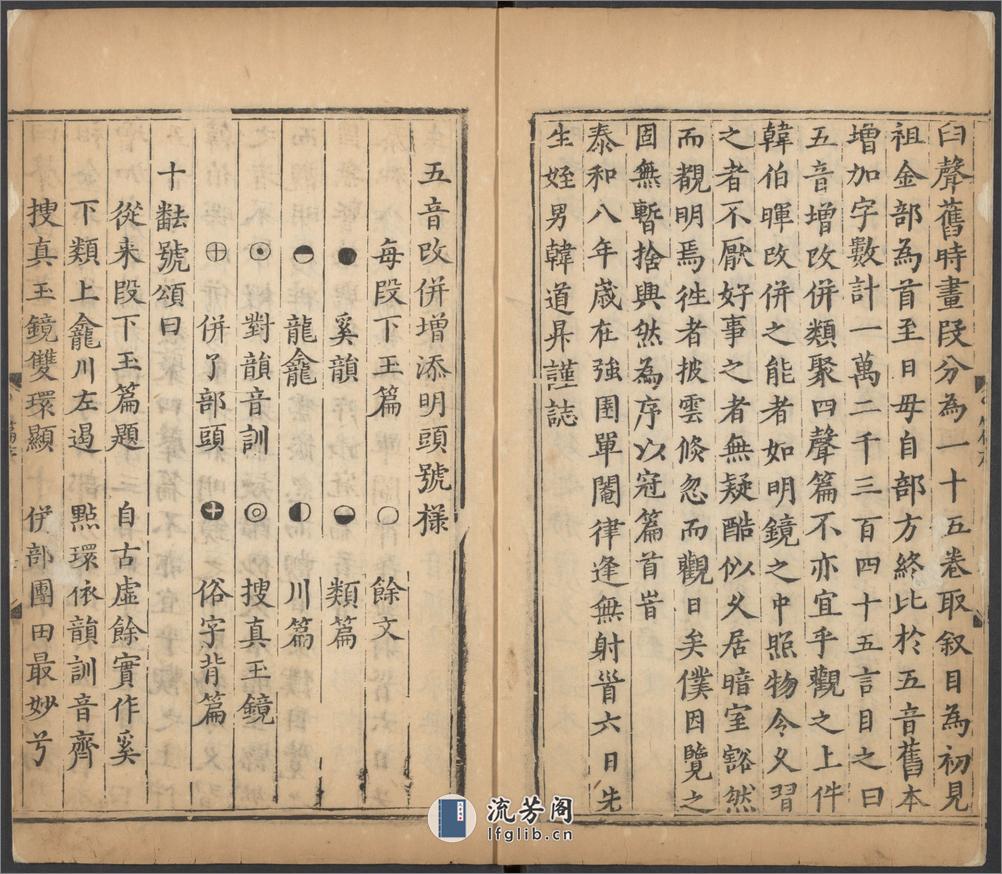 臼聲舊時畫段分為一十五卷取叙目為初見
祖金部為首至日母自部方終比於五音舊本
增加字數計一萬二千三百四十五言目之曰
五音增改併類聚四聲篇不亦宜乎觀之上件
韓伯暉改併之能者如明鏡之中照物今乂習
之者不厭好事之者無疑酷似乆居暗室豁然
而覩明焉徃者披雲倐忽而觀日矣僕因覽之
固無暫捨興然為序以冠篇首旹
泰和八年歲在強圉單閼律逢無射首六日先
生姪男韓道昇謹誌
五音改併增添明頭號樣
每段下玉篇 ○ 餘文
● 奚韻 類篇
龍龕 川篇
對韻音訓 ◎ 搜真玉鏡
⊕ 併了部頭 俗字背篇
十㽬號頌曰
從来段下玉篇題 自古虛餘實作奚
下類上龕川左邉 㸃環依韻訓音齊
捜真玉鏡雙環顯 併部團田最妙兮
流芳阁
lfglib.cn